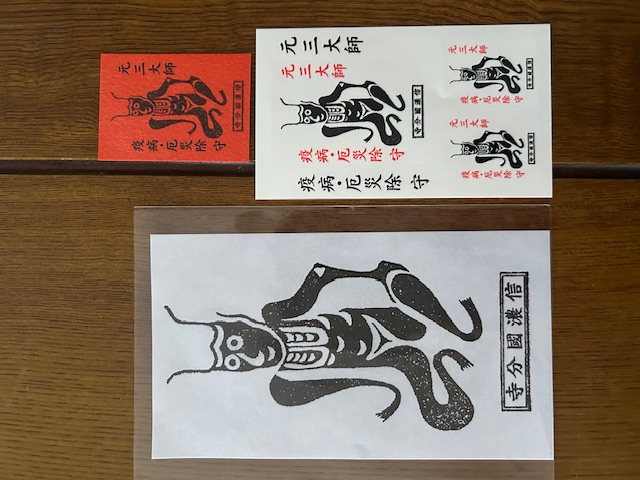 元三大師
疫病・厄災除守
信濃國分寺
元三大師
元三大師
信濃國分寺
疫病・厄災除守
疫病・厄災除守
元三大師
信濃國分寺
疫病・厄災除守
元三大師
信濃國分寺
疫病・厄災除守
信濃國分寺